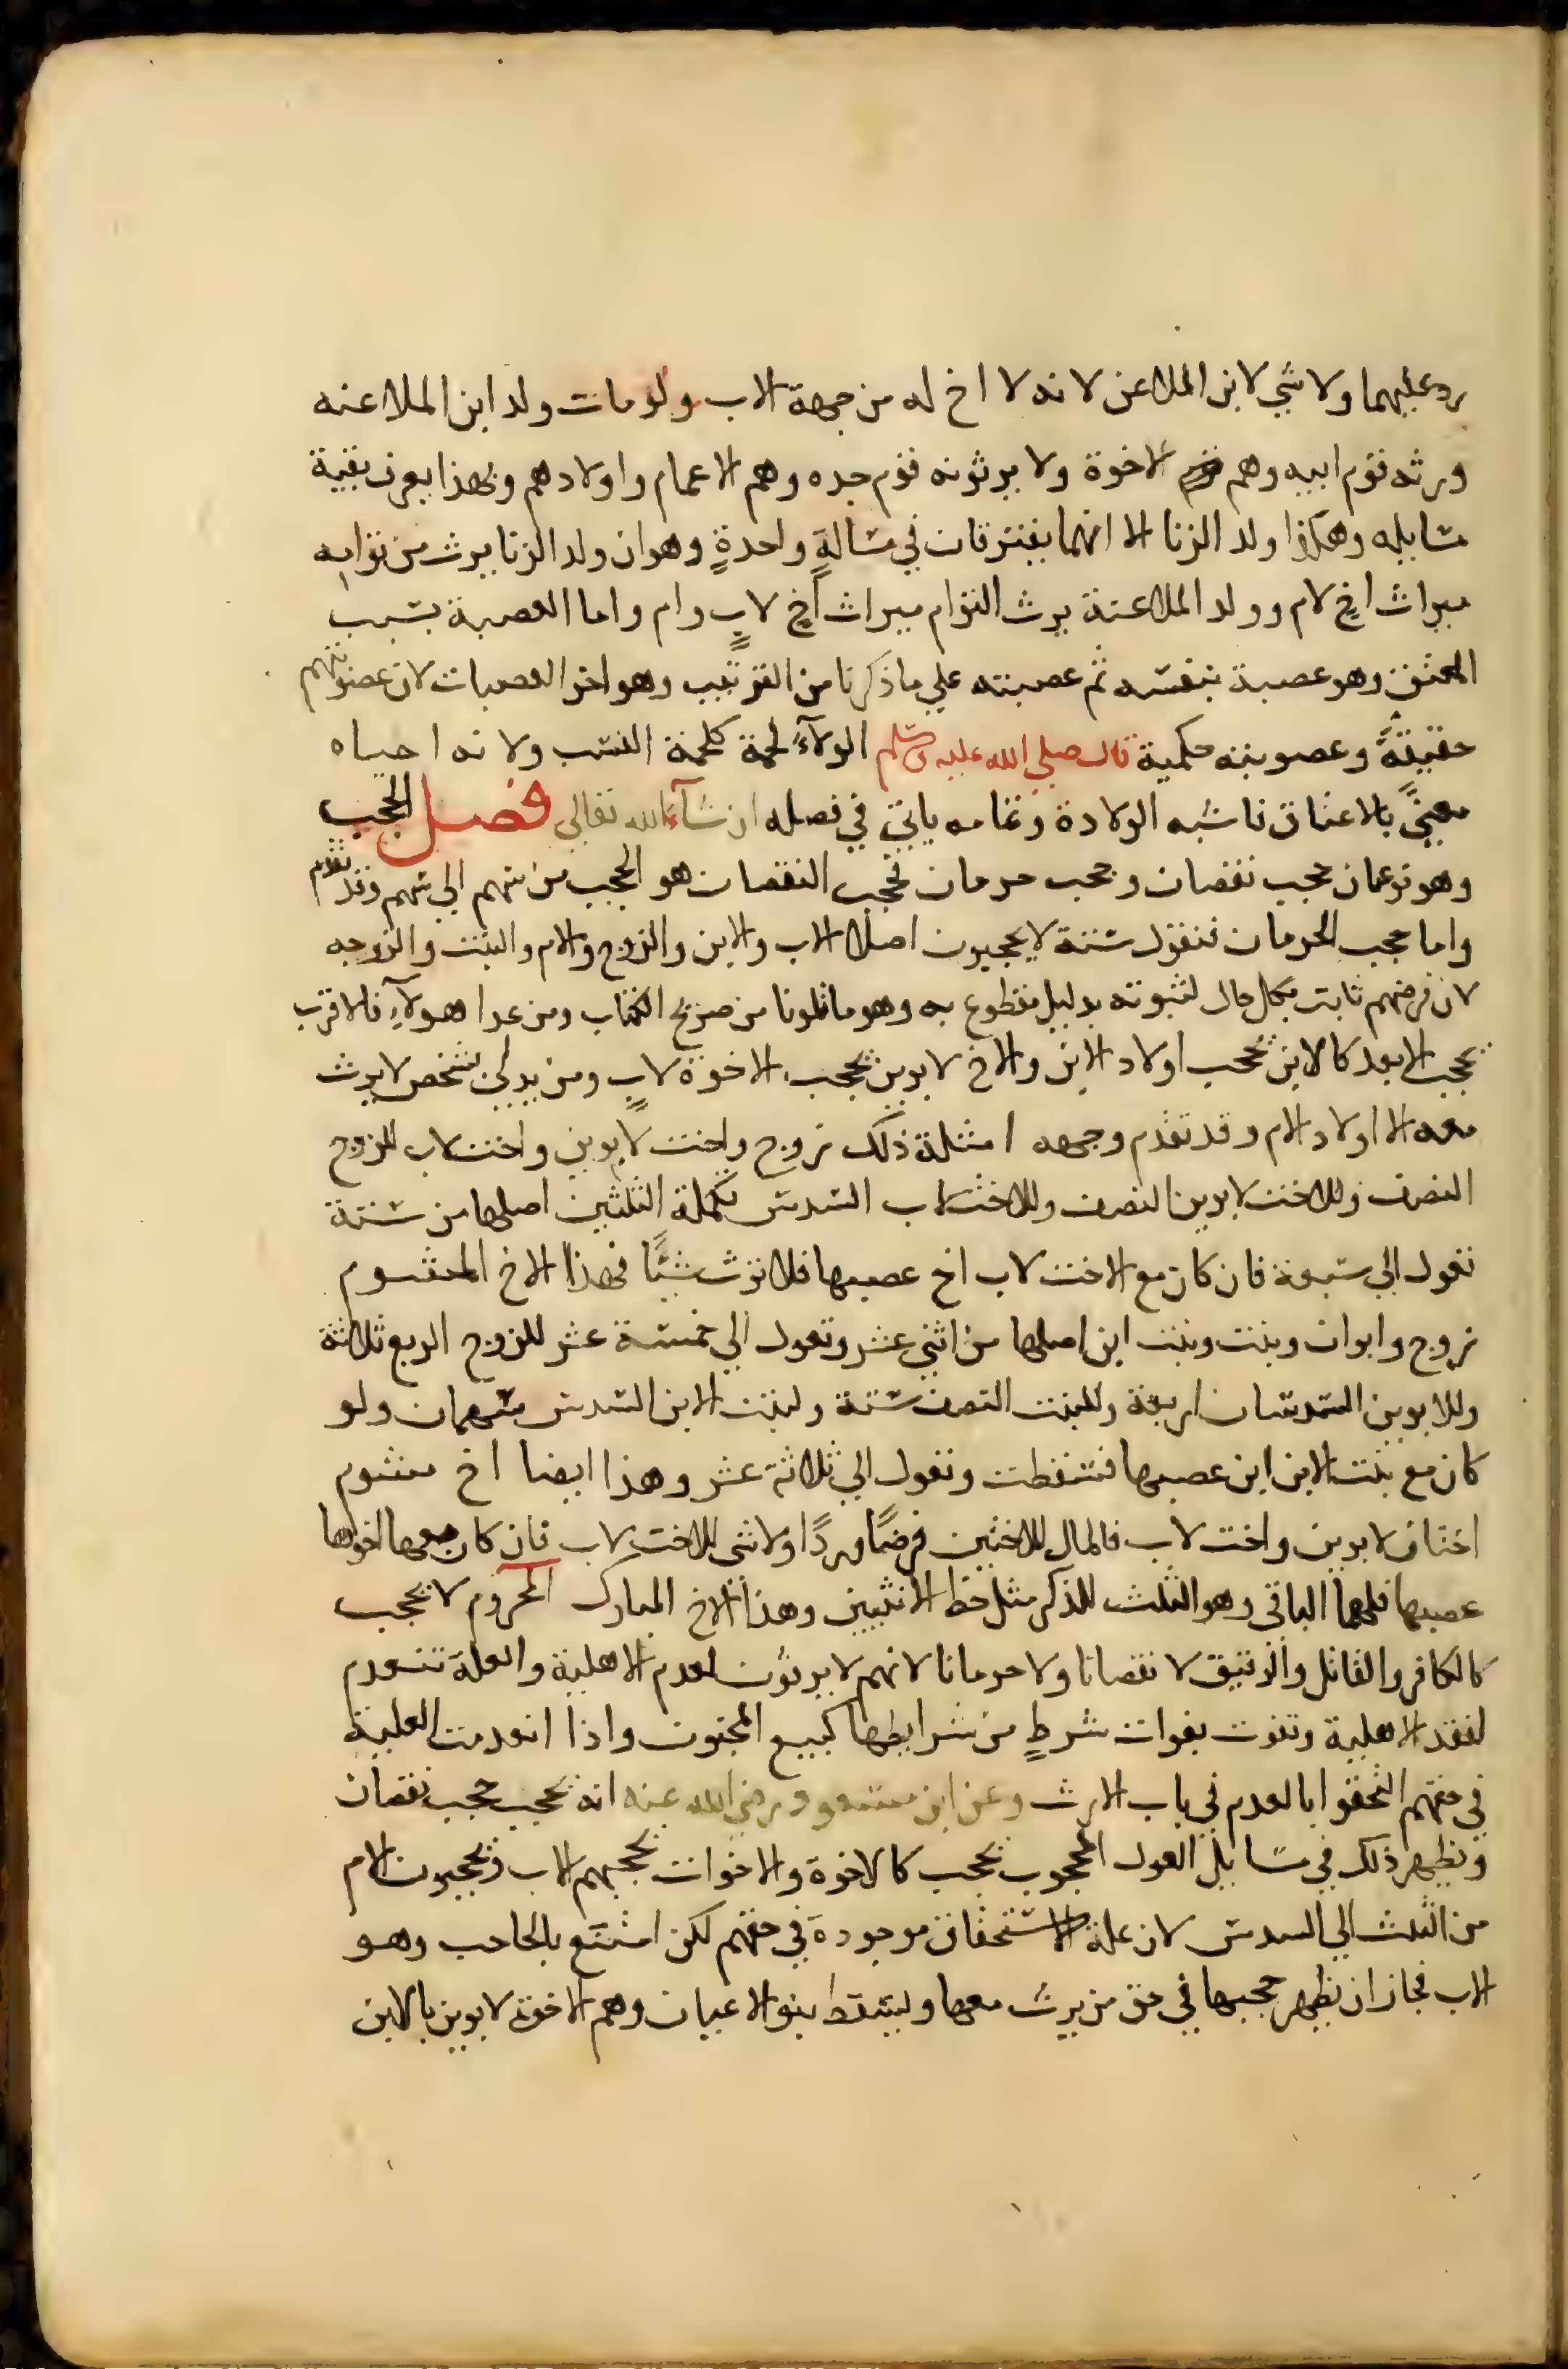 رد عليهما ولا شي لابن الملاعن لانه لا اخ له من جهة الاب ولو مات ولد ابن الملاعنه
ورثه قوم ابيه وهم الاخوة ولا يرثونه قوم جده وهم الاعمام واولادهم وبهذا يعرف بقية
مسايله وهكذا ولد الزنا الا انهما يفترقان في مسالةٍ واحدةٍ وهو ان ولد الزنا يرث من توامه
ميراث اخٍ لام وولد الملاعنة يرث التوام ميراث اخٍ لابٍ وام واما العصبة بسبب
المعتق وهو عصبة بنفسه ثم عصبته علي ما ذكرنا من الترتيب وهو اخر العصبات لان عصوبتهم
حقيقةً وعصوبته حكمية قال صلي الله عليه وسلم الولآءُ لحمة كلحمة النسب ولانه احياه
معنيً بالاعتاق فاشبه الولادة وتمامه ياتي في فصله ان شآءَ الله تعالي فصل الحجب
وهو نوعان حجب نقصان وحجب حرمان فحجب النقصان هو الحجب من سهم الي سهم وقد تقدم
واما حجب الحرمان فنقول ستة لا يحجبون اصلا الاب والابن والزوج والام والبنت والزوجه
لان فرضهم ثابت بكل حال لثبوته بدليل مقطوع به وهو ما تلونا من صريح الكتاب ومن عدا هولآءِ فالاقرب
يحجب الابعد كالابن يحجب اولاد الابن والاخ لابوين يحجب الاخوة لابٍ ومن يدلي بشخص لا يرث
معه الا اولاد الام وقد تقدم وجهه امثلة ذلك زوج واخت لابوين واخت لاب للزوج
النصف وللاخت لابوين النصف وللاخت لاب السدس تكملة الثلثين اصلها من ستة
تعول الي سبعة فان كان مع الاخت لاب اخ عصبها فلا ترث شيئًا فهذا الاخ المشوم
زوج وابوان وبنت وبنت ابن اصلها من اثني عشر وتعول الي خمسة عشر للزوج الربع ثلاثة
وللابوين السدسان اربعة وللبنت النصف ستة ولبنت الابن السدس سهمان ولو
كان مع بنت الابن ابن عصبها فسقطت وتعول الي ثلاثة عشر وهذا ايضا اخ مشوم
اختان لابوين واخت لاب فالمال للاختين فرضًا وردًا ولا شي للاخت لاب فان كان معها اخوها
عصبها فلهما الباقي وهو الثلث للذكر مثل حظ الانثيين وهذا الاخ المبارك المحروم لا يحجب
كالكافر والقاتل والرقيق لا نقصانا ولا حرمانا لانهم لا يرثون لعدم الاهلية والعلة تنعدم
لفقد الاهلية وتفوت بفوات شرطٍ من شرايطها كبيع المجنون واذا انعدمت العلية
في حقهم التحقوا بالعدم في باب الارث وعن ابن مسعود رضي الله عنه انه يحجب حجب نقصان
ويظهر ذلك في مسايل العول المحجوب يحجب كالاخوة والاخوات يحجبهم الاب ويحجبون الام
من الثلث الي السدس لان علة الاستحقاق موجودة في حقهم لكن امتنع بالحاجب وهو
الاب فجاز ان يظهر حجبها في حق من يرث معها ويسقط بنو الاعيان وهم الاخوة لابوين بالابن